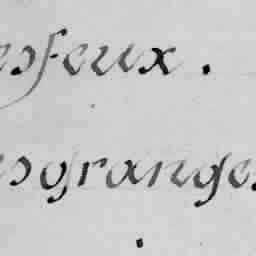 esfeux.
esgranges